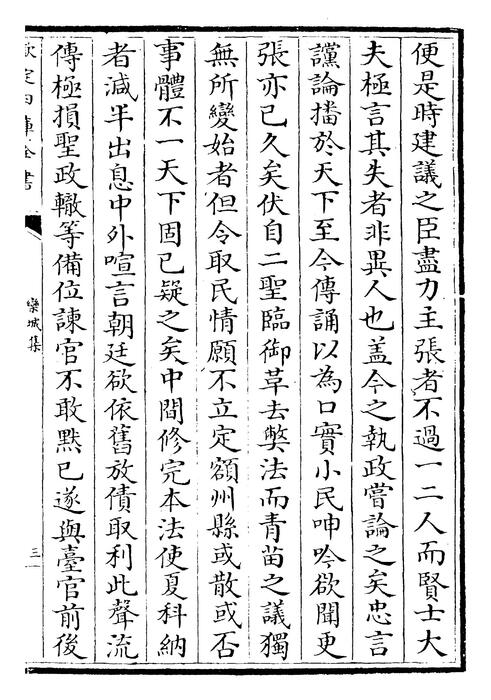 便是時建議之臣盡力主張者不過一二人而賢士大
夫極言其失者非異人也盖今之執政嘗論之矣忠言
讜論播於天下至今傳誦以為口實小民呻吟欲聞更
張亦已久矣伏自二聖臨御革去弊法而青苗之議獨
無所變始者但令取民情願不立定額州縣或散或否
事體不一天下固已疑之矣中間修完本法使夏科納
者減半出息中外喧言朝廷欲依舊放債取利此聲流
傳極損聖政轍等備位諫官不敢黙已遂與臺官前後
欽定四庫全書
欒城集
三